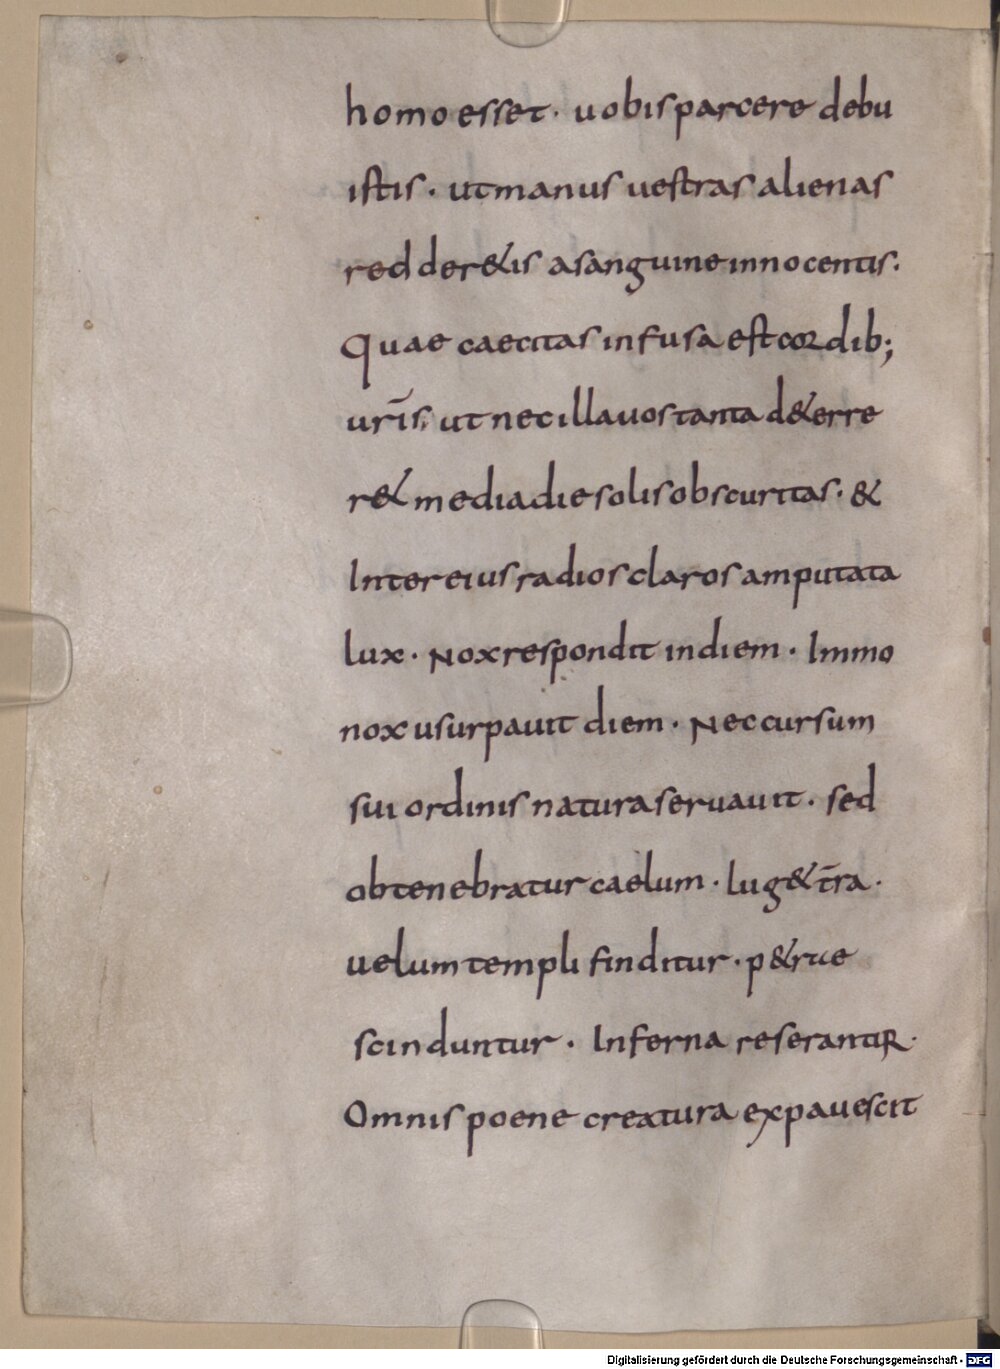 homo esset · uobis parcere debu
istis · ut manus uestras alienas
redder&is a sanguine innocentis.
Quae caecitas infusa est cordib;
urīs, ut nec illa uos tanta d&erre
r& media die solis obscuritas · &
Inter eius radios claros amputata
lux · Nox respondit in diem · Immo
nox usurpauit diem · Nec cursum
sui ordinis natura seruauit · sed
obtenebratur caelum · lug& t̄ra ·
uelum templi finditur · p&rae
scinduntur · Inferna reserantur ·
Omnis poene creatura expauescit
Digitalisierung gefördert durch die Deutsche Forschungsgemeinschaft - DFG